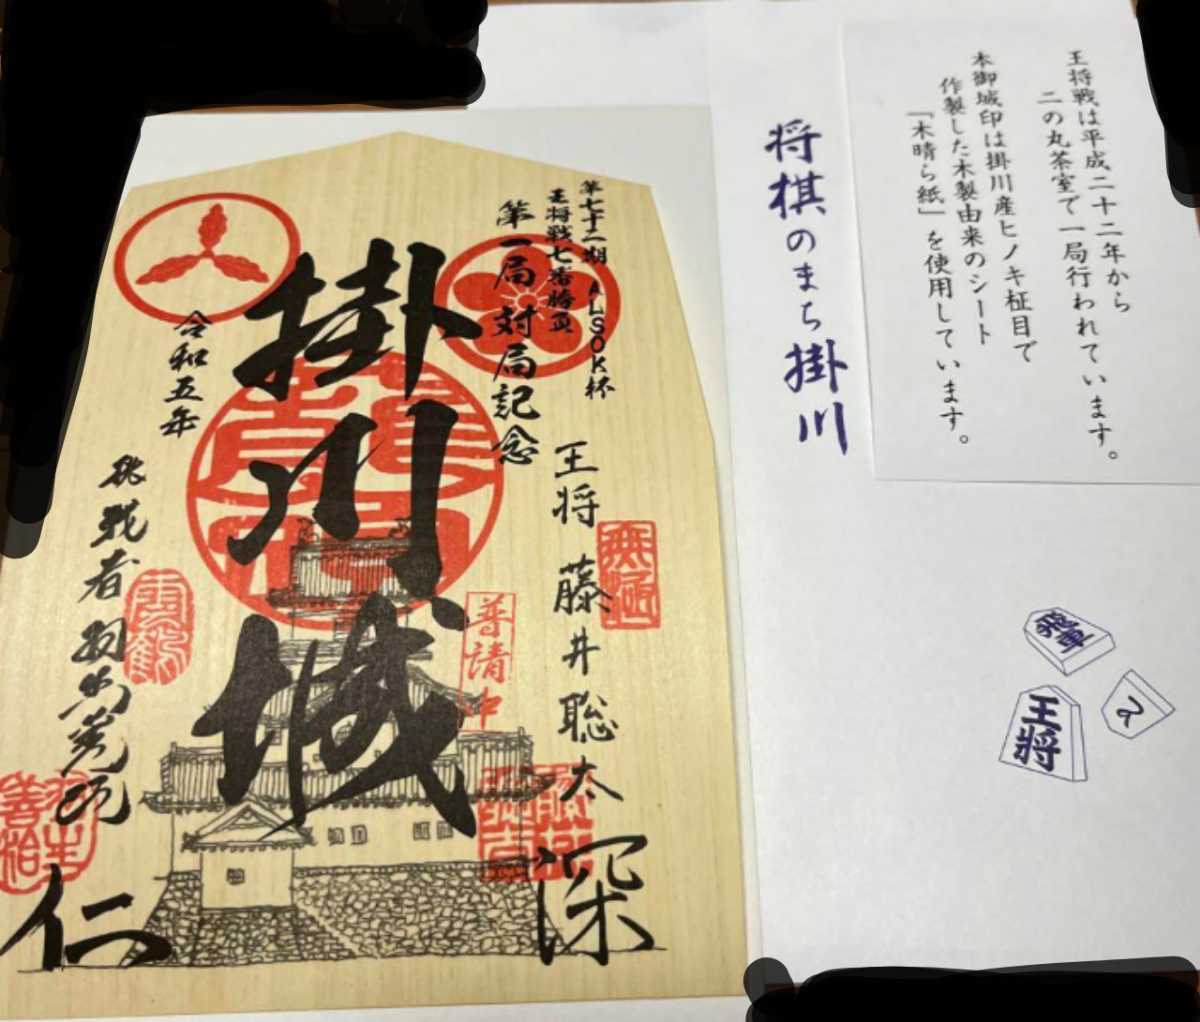 王将戦は平成二十二年から
二の丸茶室で一局行われています。
本御城印は掛川産ヒノキ柾目で
作製した木製由来のシート
「木晴ら紙」を使用しています。
将棋のまち掛川
飛車
王将
第七十二期 ALSOK杯
王将戦七番勝負
第一局対局記念
王将 藤井聡太
無極
深
掛川城
普請中
令和五年
挑戦者 羽生善治
雲鶴
羽生善治
仁